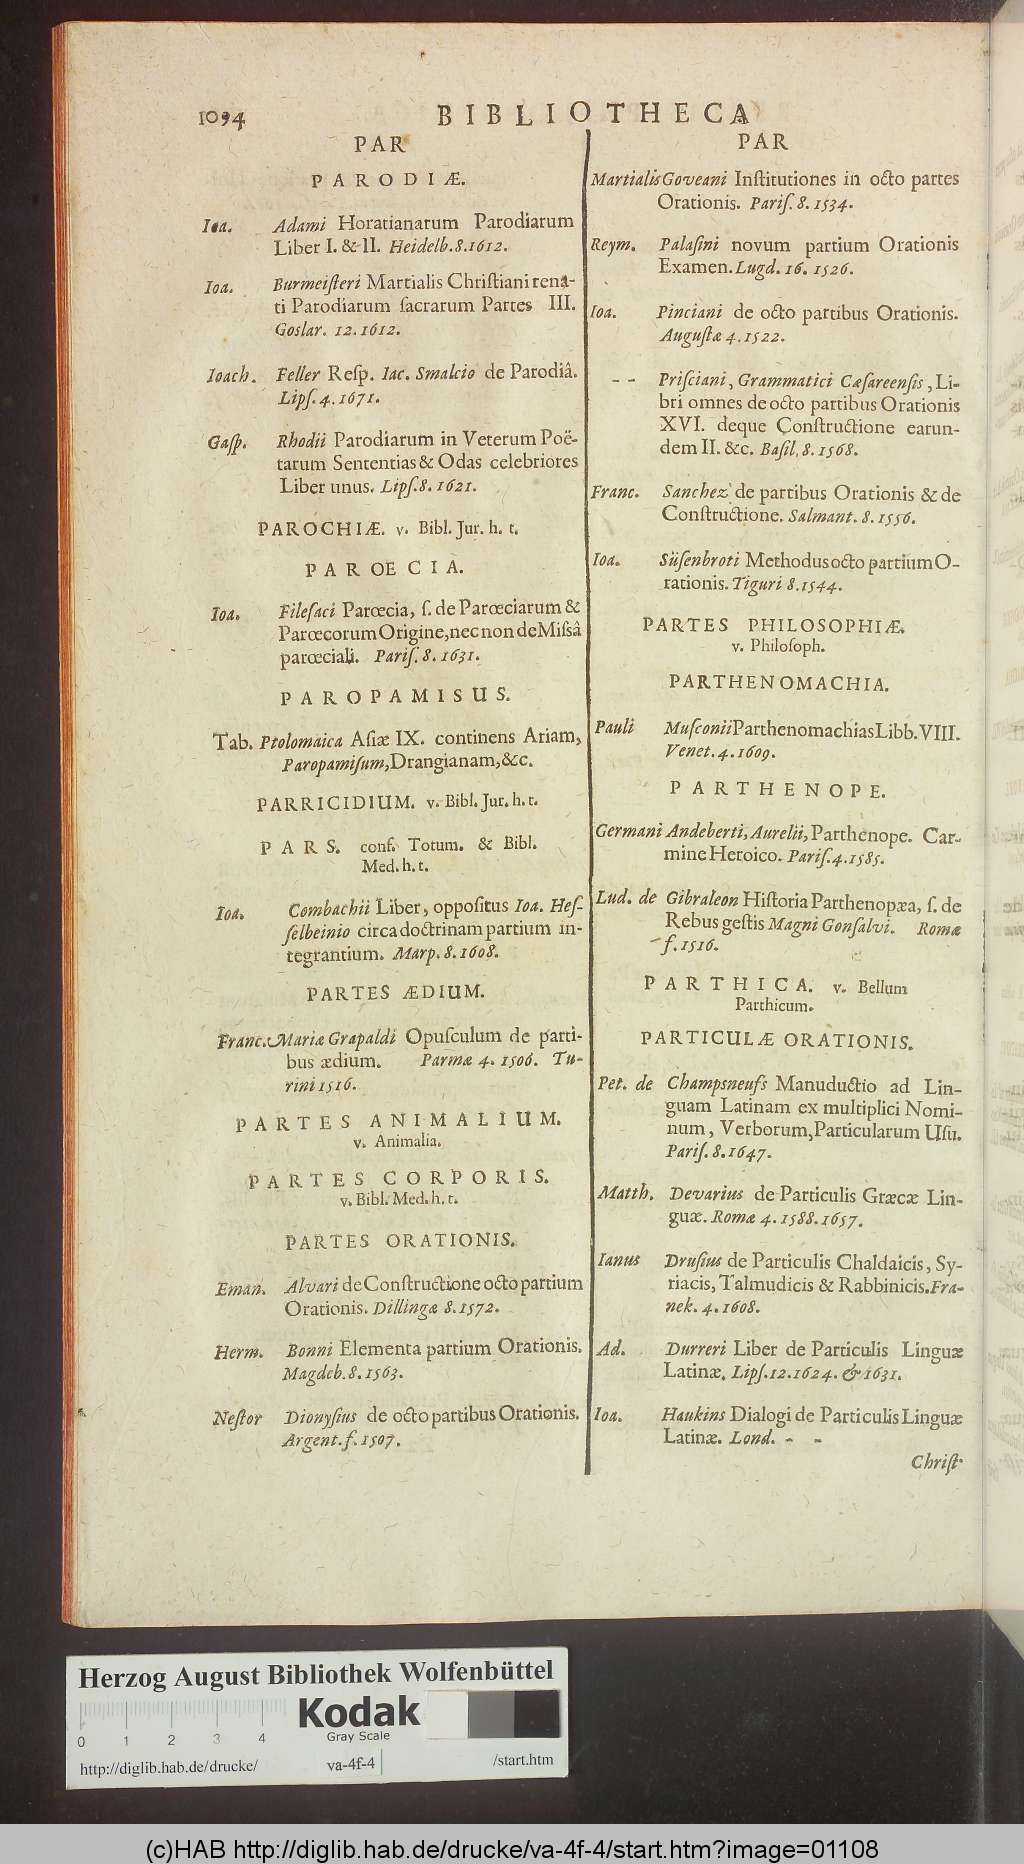 1094
BIBLIOTHECA
PAR
PARODIÆ.
Ioa. Adami Horatianarum Parodiarum
Liber I. & II. Heidelb. 8. 1612.
Ioa. Burmeiſteri Martialis Chriſtiani rena-
ti Parodiarum ſacrarum Partes III.
Goslar. 12. 1612.
Ioach. Feller Reſp. Iac. Smalcio de Parodiâ.
Lipſ. 4. 1671.
Gaſp. Rhodii Parodiarum in Veterum Poë-
tarum Sententias & Odas celebriores
Liber unus. Lipſ. 8. 1621.
PAROCHIÆ. v. Bibl. Jur. h. t.
PAROECIA.
Ioa. Fileſaci Parœcia, ſ. de Parœciarum &
Parœcorum Origine, nec non de Miſsâ
parœciali. Pariſ. 8. 1631.
PAROPAMISUS.
Tab. Ptolomaica Aſiæ IX. continens Ariam,
Paropamiſum, Drangianam, &c.
PARRICIDIUM. v. Bibl. Jur. h. t.
PARS. conf. Totum. & Bibl.
Med. h. t.
Ioa. Combachii Liber, oppoſitus Ioa. Heſ-
ſelbeinio circa doctrinam partium in-
tegrantium. Marp. 8. 1608.
PARTES ÆDIUM.
Franc. Mariæ Grapaldi Opuſculum de parti-
bus ædium. Parmæ 4. 1506. Tu-
rini 1516.
PARTES ANIMALIUM.
v. Animalia.
PARTES CORPORIS.
v. Bibl. Med. h. t.
PARTES ORATIONIS.
Eman. Alvari de Conſtructione octo partium
Orationis. Dillingæ 8. 1572.
Herm. Bonni Elementa partium Orationis.
Magdeb. 8. 1563.
Neſtor Dionyſius de octo partibus Orationis.
Argent. f. 1507.
PAR
Martialis Goveani Inſtitutiones in octo partes
Orationis. Pariſ. 8. 1534.
Reym. Palaſini novum partium Orationis
Examen. Lugd. 16. 1526.
Ioa. Pinciani de octo partibus Orationis.
Auguſtæ 4. 1522.
- - Priſciani, Grammatici Cæſareenſis, Li-
bri omnes de octo partibus Orationis
XVI. deque Conſtructione earun-
dem II. &c. Baſil. 8. 1568.
Franc. Sanchez de partibus Orationis & de
Conſtructione. Salmant. 8. 1556.
Ioa. Süſenbroti Methodus octo partium O-
rationis. Tiguri 8. 1544.
PARTES PHILOSOPHIÆ.
v. Philoſoph.
PARTHENOMACHIA.
Pauli Muſconii Parthenomachias Libb. VIII.
Venet. 4. 1609.
PARTHENOPE.
Germani Andeberti, Aurelii, Parthenope. Car-
mine Heroico. Pariſ. 4. 1585.
Lud. de Gibraleon Hiſtoria Parthenopæa, ſ. de
Rebus geſtis Magni Gonſalvi. Romæ
f. 1516.
PARTHICA. v. Bellum
Parthicum.
PARTICULÆ ORATIONIS.
Pet. de Champsneufs Manuductio ad Lin-
guam Latinam ex multiplici Nomi-
num, Verborum, Particularum Uſu.
Pariſ. 8. 1647.
Matth. Devarius de Particulis Græcæ Lin-
guæ. Romæ 4. 1588. 1657.
Ianus Druſius de Particulis Chaldaicis, Sy-
riacis, Talmudicis & Rabbinicis. Fra-
nek. 4. 1608.
Ad. Durreri Liber de Particulis Linguæ
Latinæ. Lipſ. 12. 1624. & 1631.
Ioa. Haukins Dialogi de Particulis Linguæ
Latinæ. Lond. - -
Chriſt.
Herzog August Bibliothek Wolfenbüttel
Kodak
Gray Scale
0 1 2 3 4
http://diglib.hab.de/drucke/ va-4f-4 /start.htm
(c)HAB http://diglib.hab.de/drucke/va-4f-4/start.htm?image=01108